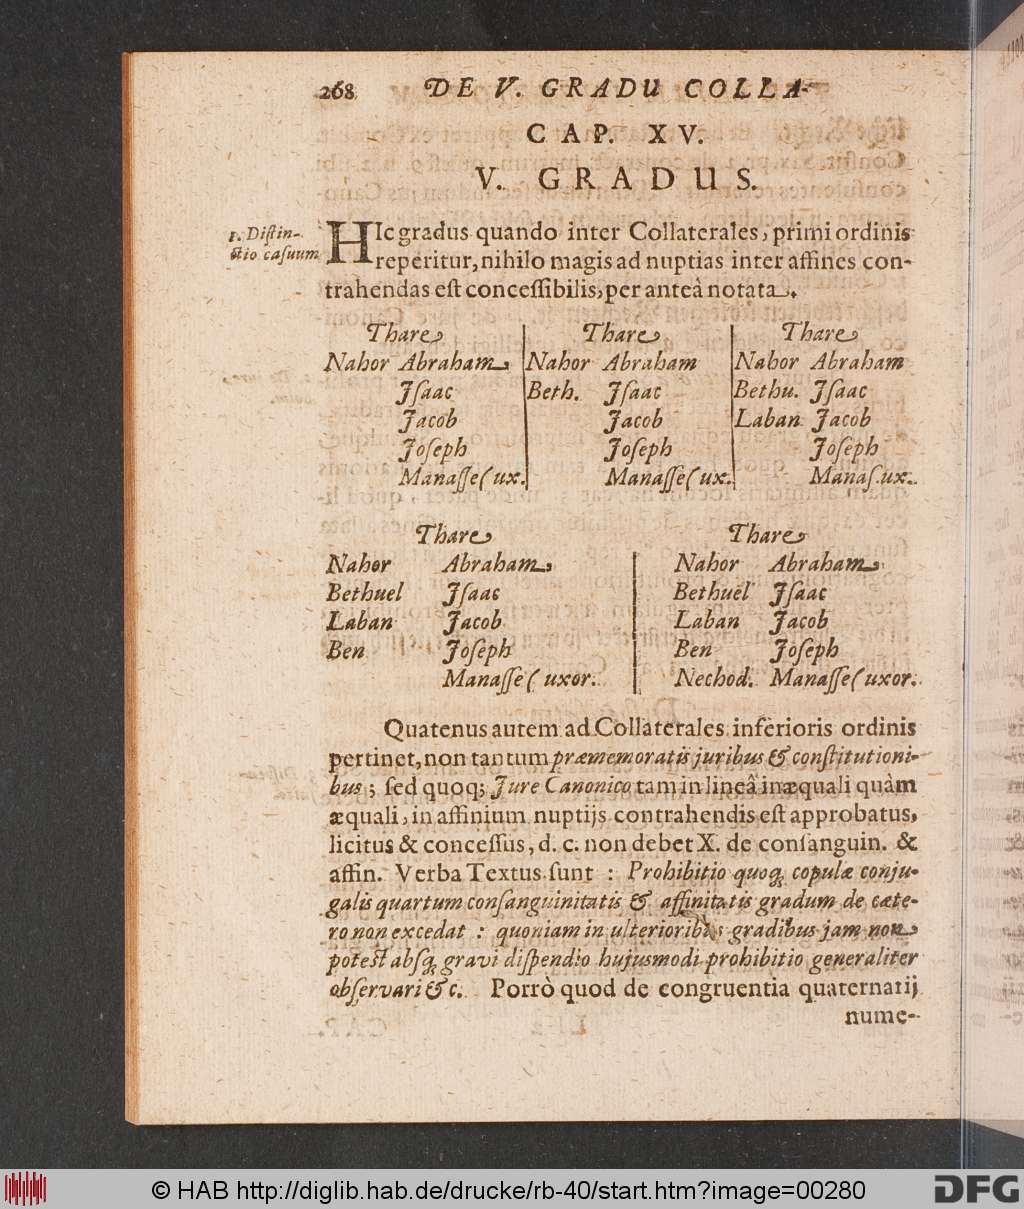 268 DE V. GRADU COLLA-
CAP. XV.
V. GRADUS.
1. Distin-
ctio casuum
HIc gradus quando inter Collaterales, primi ordinis
reperitur, nihilo magis ad nuptias inter affines con-
trahendas est concessibilis, per anteà notata.
Thare | Thare | Thare
Nahor Abraham | Nahor Abraham | Nahor Abraham
Isaac | Beth. Isaac | Bethu. Isaac
Jacob | Jacob | Laban Jacob
Joseph | Joseph | Joseph
Manasse( ux. | Manasse( ux. | Manas. ux.
Thare | Thare
Nahor Abraham | Nahor Abraham
Bethuel Isaac | Bethuel Isaac
Laban Jacob | Laban Jacob
Ben Joseph | Ben Joseph
Manasse( uxor. | Nechod. Manasse( uxor.
Quatenus autem ad Collaterales inferioris ordinis
pertinet, non tantum præmemoratis juribus & constitutioni-
bus; sed quoq; Jure Canonico tam in lineâ inæquali quàm
æquali, in affinium nuptijs contrahendis est approbatus,
licitus & concessus, d. c. non debet X. de consanguin. &
affin. Verba Textus sunt : Prohibitio quoq; copulæ conju-
galis quartum consanguinitatis & affinitatis gradum de cæte-
ro non excedat : quoniam in ulterioribus gradibus jam non
potest absq; gravi dispendio hujusmodi prohibitio generaliter
observari &c. Porrò quod de congruentia quaternarij
nume-
© HAB http://diglib.hab.de/drucke/rb-40/start.htm?image=00280
DFG